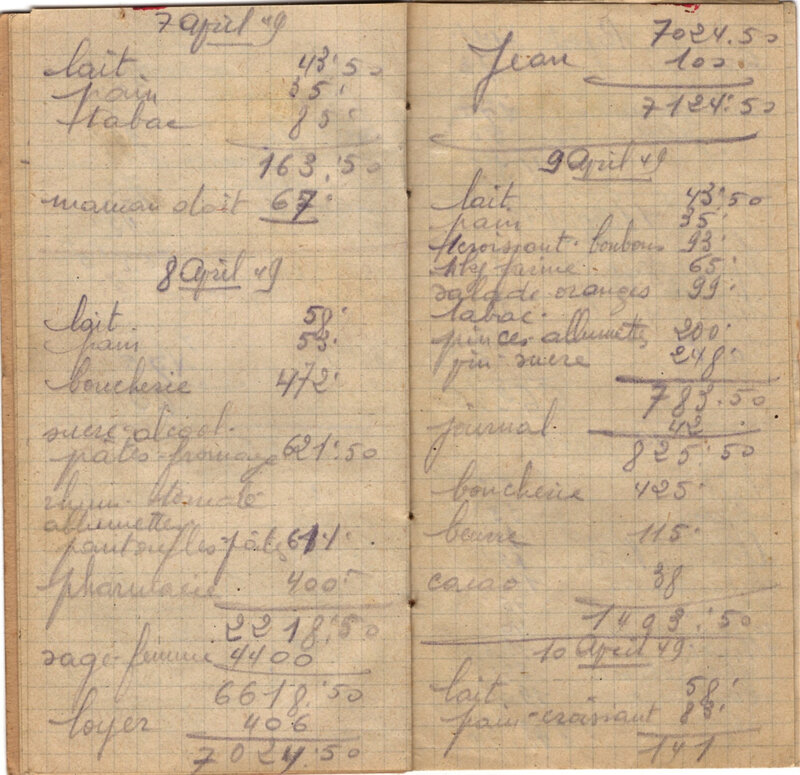 7 April 49
lait 43.50
pain 35.
tabac 85.
163.50
maman doit 67.
8 April 49
lait 58.
pain 53.
boucherie 472.
sucre-alcool.
pâtes-fromage 621.50
rhum-tomate
allumettes
pantoufles-pâtes 611.
pharmacie 400.
2218.50
sage-femme 4400
6618.50
loyer 406
7024.50
7024.50
Jean 100
7124.50
9 April 49
lait 43.50
pain 35.
croissant-bonbons 93.
farine 65.
salade-oranges 99.
tabac.
pinces-allumettes 200.
vin-sucre 248.
783.50
journal 42.
825.50
boucherie 425.
beurre 115.
cacao 38
1403.50
10 April 49.
lait 58.
pain-croissant 83.
141